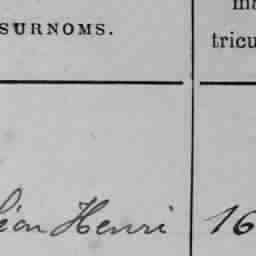 SURNOMS.
ma
tricu
éon Henri
16